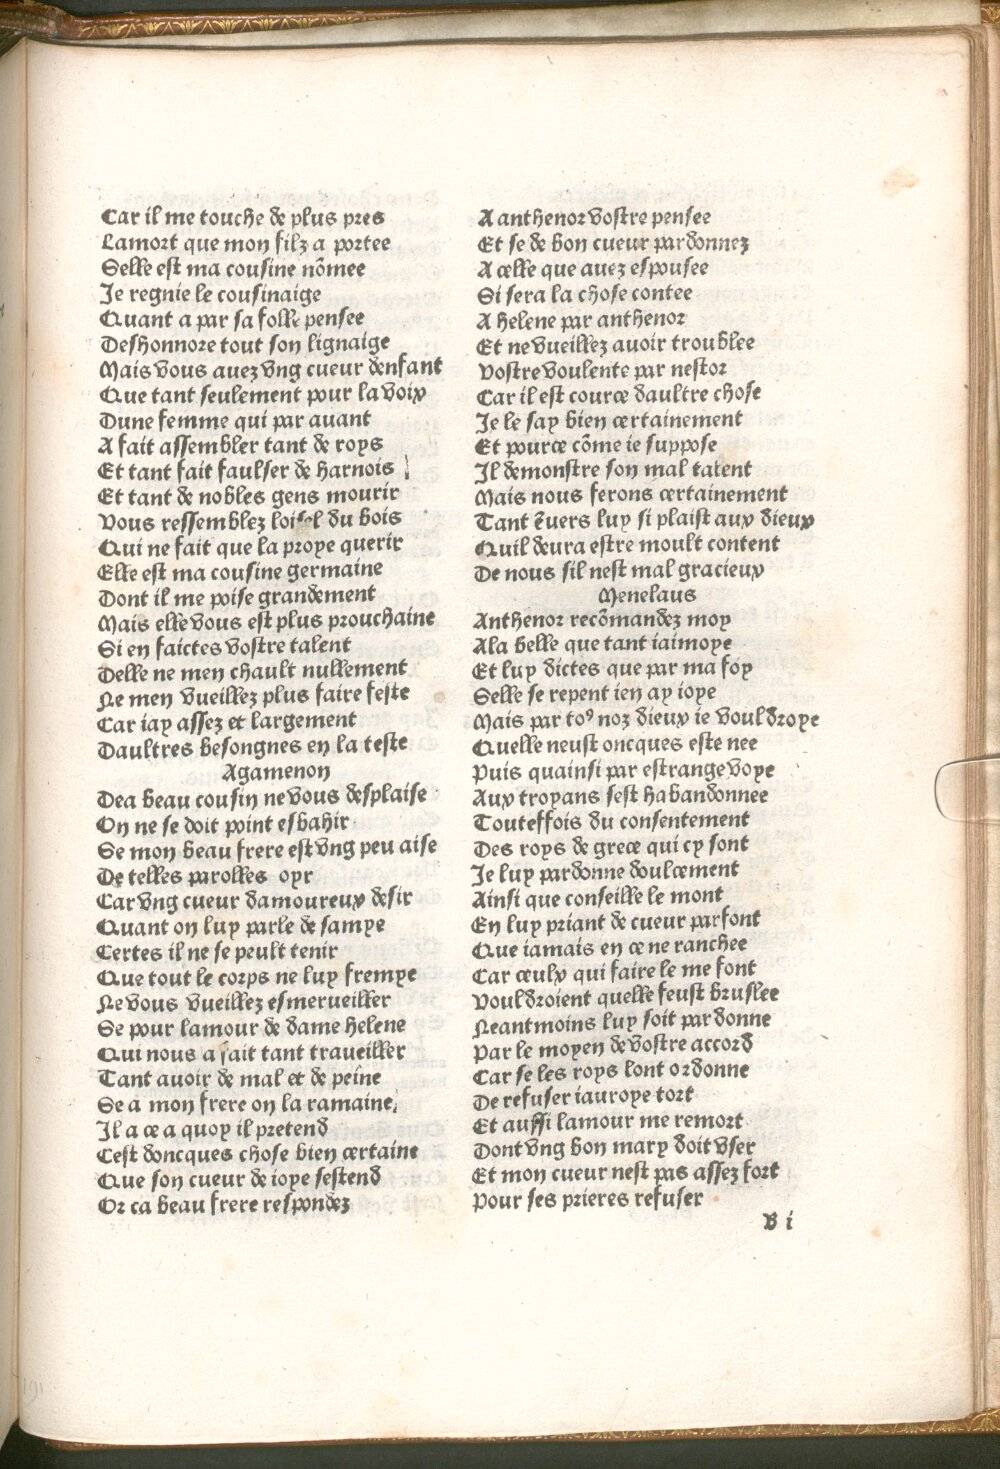 Car il me touche de plus pres
Lamort que mon filz a portee
Selle est ma cousine nõmee
Je regnie le cousinaige
Quant a par sa folle pensee
Deshonnore tout son lignaige
Mais vous auez vng cueur denfant
Que tant seulement pour la voix
Dune femme qui par auant
A fait assembler tant de roys
Et tant fait faulser de harnois
Et tant de nobles gens mourir
Vous ressemblez loisel du bois
Qui ne fait que la proye querir
Elle est ma cousine germaine
Dont il me poise grandement
Mais elle vous est plus prouchaine
Si en faictes vostre talent
Delle ne men chault nullement
Ne men vueillez plus faire feste
Car iay assez et largement
Daultres besongnes en la teste
Agamenon
Dea beau cousin ne vous desplaise
On ne se doit point esbahir
Se mon beau frere est vng peu aise
De telles parolles oyr
Car vng cueur damoureux desir
Quant on luy parle de samye
Certes il ne se peult tenir
Que tout le corps ne luy fremye
Ne vous vueillez esmerueiller
Se pour lamour de dame helene
Qui nous a fait tant traueiller
Tant auoir de mal et de peine
Se a mon frere on la ramaine
Il a ce a quoy il pretend
Cest doncques chose bien certaine
Que son cueur de ioye sestend
Or ca beau frere respondez
A anthenor vostre pensee
Et se de bon cueur pardonnez
A celle que auez espousee
Si sera la chose contee
A helene par anthenor
Et ne vueillez auoir troublee
Vostre voulente par nestor
Car il estource daultre chose
Je le say bien certainement
Et pource cõme ie suppose
Il demonstre son mal talent
Mais nous ferons certainement
Tant ẽuers luy si plaist aux dieux
Quil deura estre moult content
De nous sil nest mal gracieux
Menelaus
Anthenor recõmandez moy
Ala belle que tant iaimoye
Et luy dictes que par ma foy
Selle se repent ien ay ioye
Mais par toꝰ noz dieux ie vouldroye
Quelle neust oncques este nee
Puis quainsi par estrange voye
Aux troyans sest habandonnee
Touteffois du consentement
Des roys de grece qui cy sont
Je luy pardonne doulcement
Ainsi que conseille le mont
En luy priant de cueur parfont
Que iamais en ce ne ranchee
Car ceulx qui faire le me font
Vouldroient quelle feust bruslee
Neantmoins luy soit pardonne
Par le moyen de vostre accord
Car se les roys lont ordonne
De refuser iauroye tort
Et aussi lamour me remort
Dont vng bon mary doit vser
Et mon cueur nest pas assez fort
Pour ses prieres refuser
v i